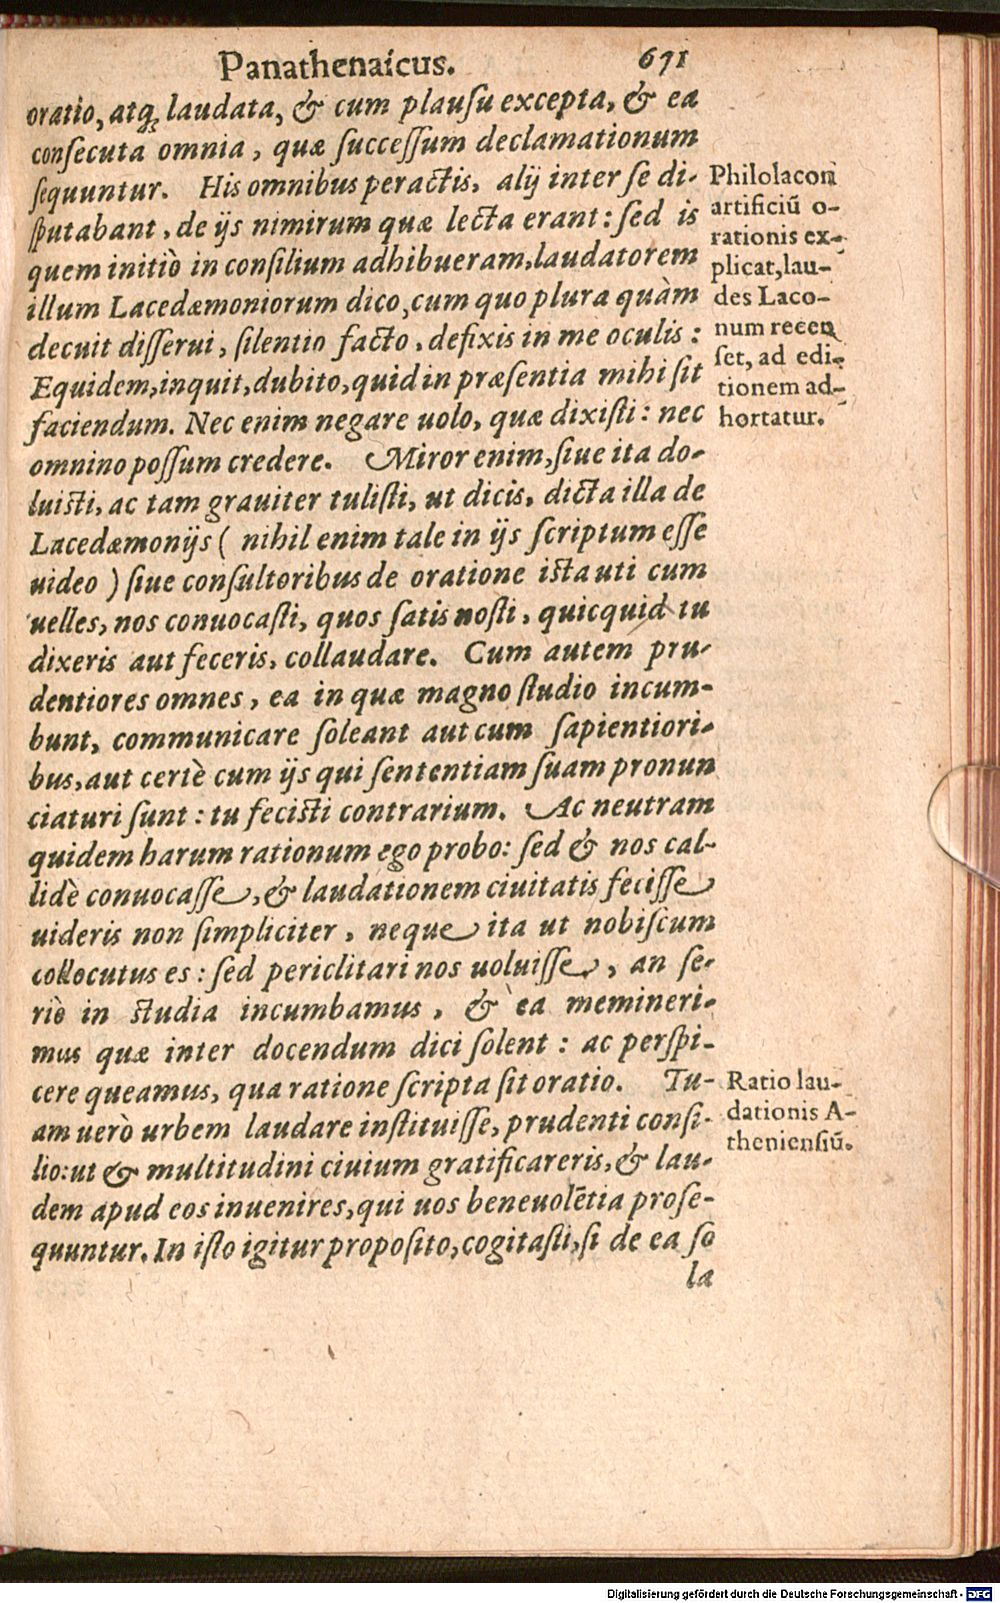 Panathenaicus. 671
oratio, atq́ꝫ laudata, & cum plausu excepta, & ea
consecuta omnia, quæ successum declamationum
sequuntur. His omnibus peractis, alij inter se di-
sputabant, de ijs nimirum quæ lecta erant: sed is
quem initiò in consilium adhibueram, laudatorem
illum Lacedæmoniorum dico, cum quo plura quàm
decuit disserui, silentio facto, defixis in me oculis:
Equidem, inquit, dubito, quid in præsentia mihi sit
faciendum. Nec enim negare uolo, quæ dixisti: nec
omnino possum credere. Miror enim, siue ita do-
luisti, ac tam grauiter tulisti, ut dicis, dicta illa de
Lacedæmonijs ( nihil enim tale in ijs scriptum esse
uideo ) siue consultoribus de oratione ista uti cum
uelles, nos conuocasti, quos satis nosti, quicquid tu
dixeris aut feceris, collaudare. Cum autem pru-
dentiores omnes, ea in quæ magno studio incum-
bunt, communicare soleant aut cum sapientiori-
bus, aut certè cum ijs qui sententiam suam pronun
ciaturi sunt: tu fecisti contrarium. Ac neutram
quidem harum rationum ego probo: sed & nos cal-
lidè conuocasse, & laudationem ciuitatis fecisse
uideris non simpliciter, neque ita ut nobiscum
collocutus es: sed periclitari nos uoluisse, an se-
riò in studia incumbamus, & ea memineri-
mus quæ inter docendum dici solent: ac perspi-
cere queamus, qua ratione scripta sit oratio. Tu-
am uerò urbem laudare instituisse, prudenti consi-
lio: ut & multitudini ciuium gratificareris, & lau-
dem apud eos inuenires, qui uos beneuolētia prose-
quuntur. In isto igitur proposito, cogitasti, si de ea so
la
Philolacon
artificiū o-
rationis ex-
plicat, lau-
des Laco-
num recen
set, ad edi-
tionem ad-
hortatur.
Ratio lau-
dationis A-
theniensiū.
Digitalisierung gefördert durch die Deutsche Forschungsgemeinschaft - DFG